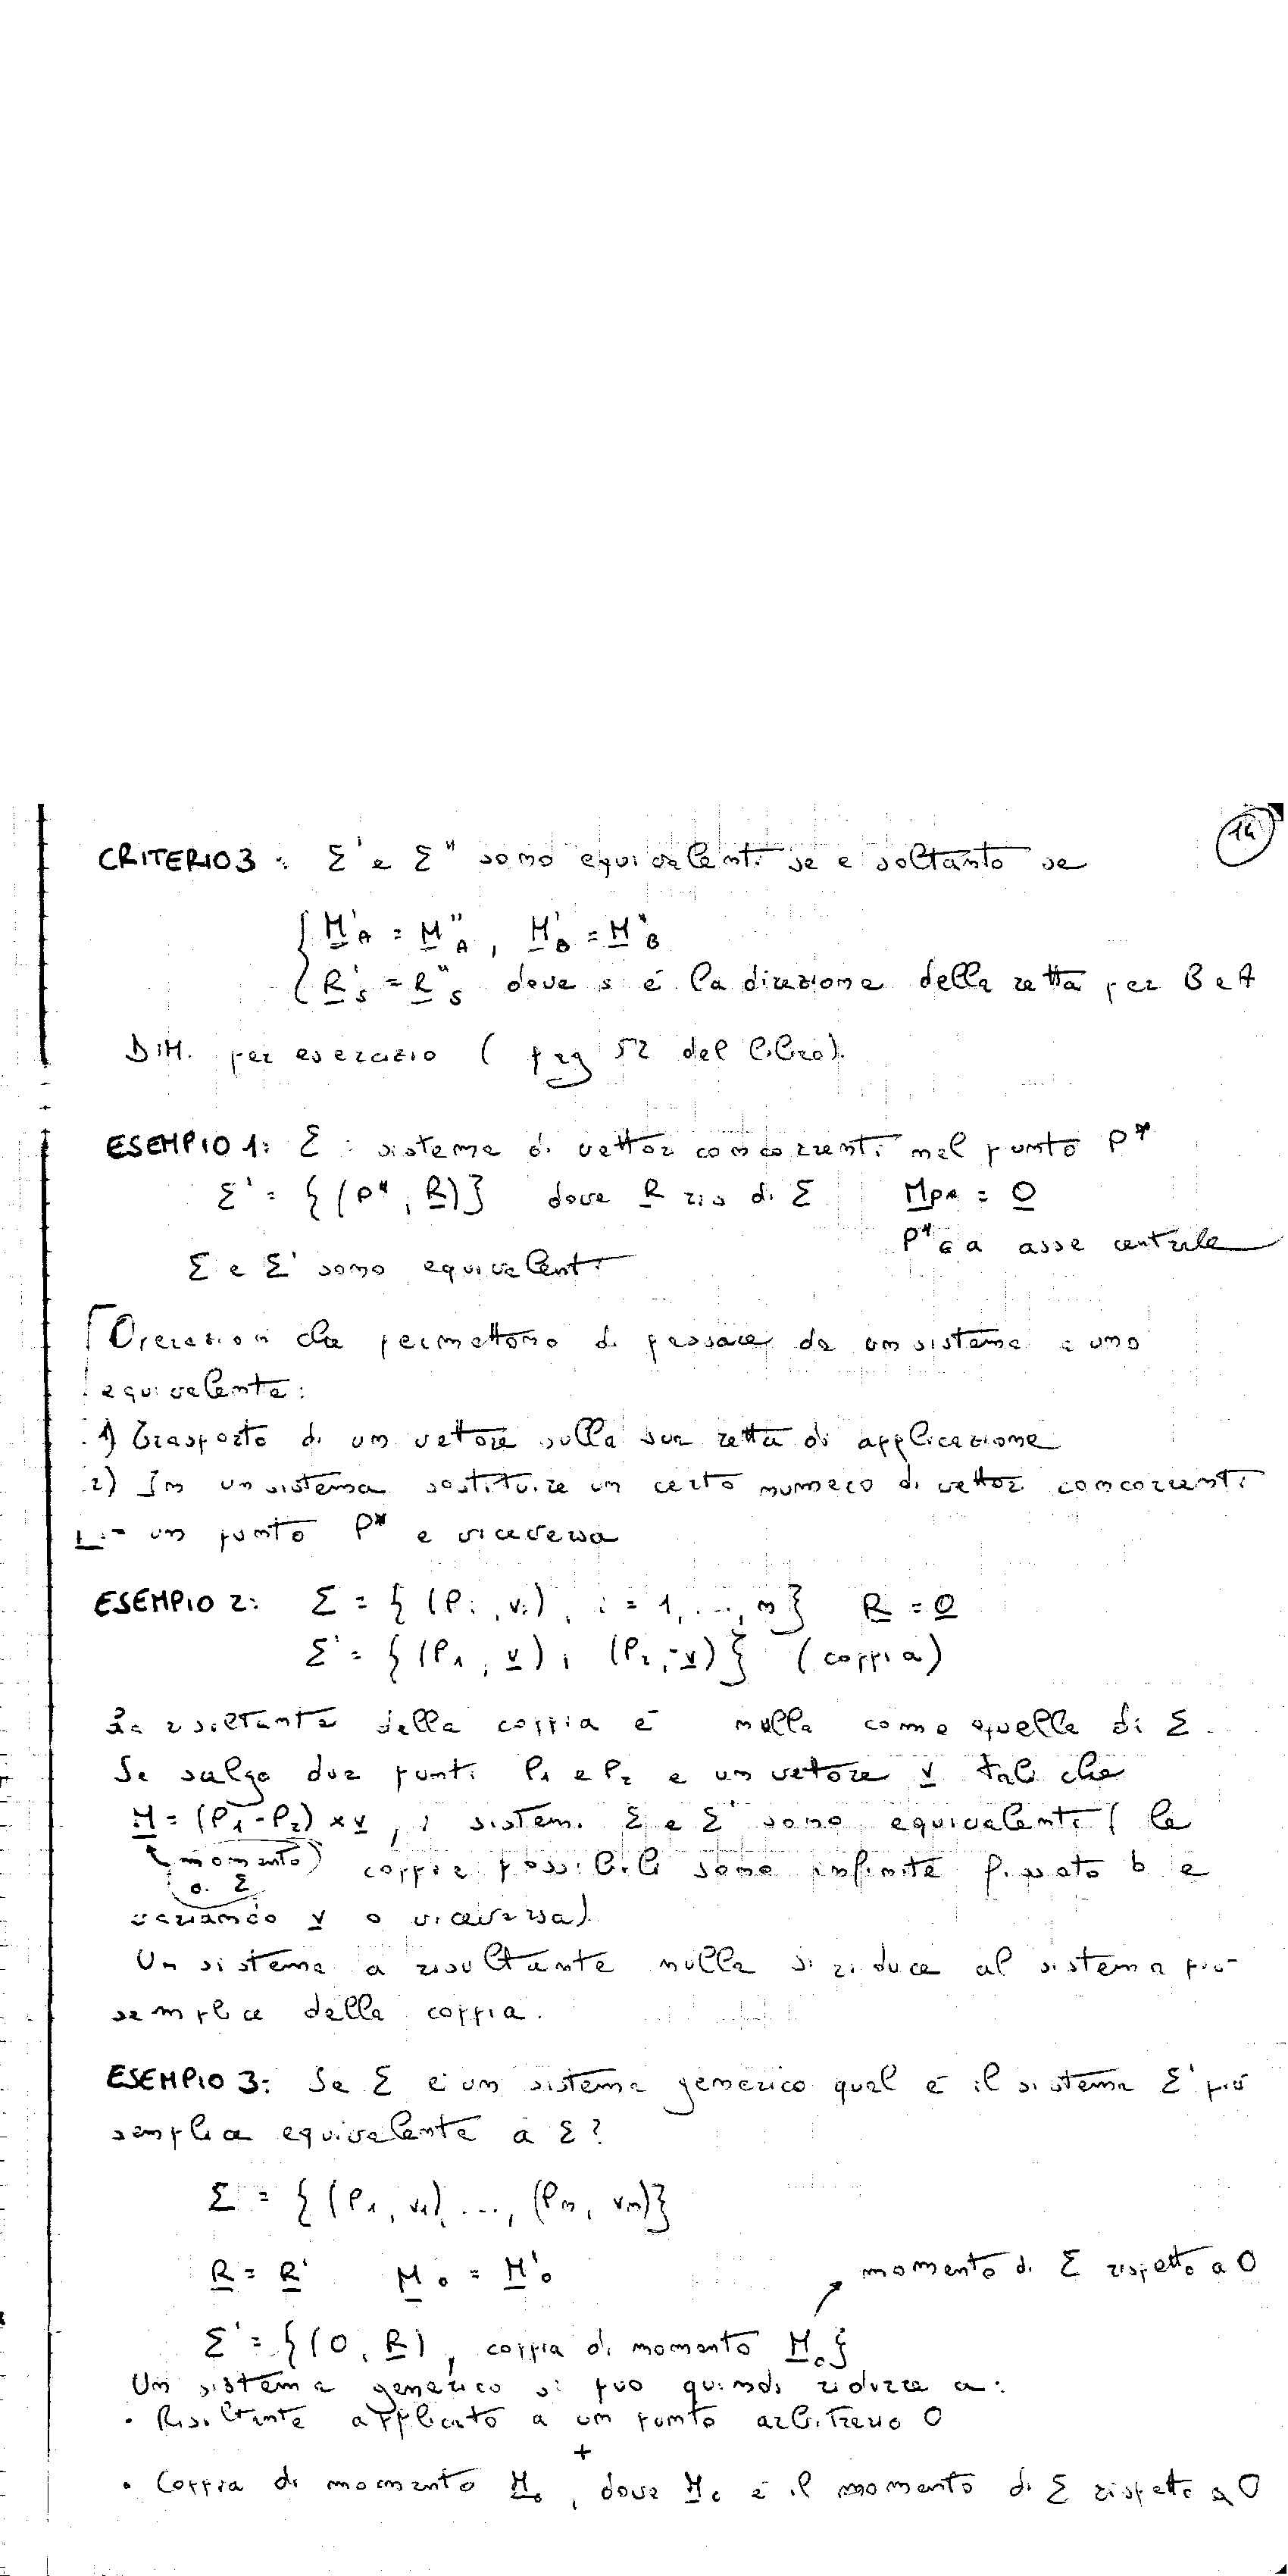 14
CRITERIO 3: Σ' e Σ" sono equivalenti se e soltanto se
{ M'A = M"A, M'B = M"B
R's = R"s dove s è la direzione della retta per B e A
DIM. per esercizio ( pag 52 del libro).
ESEMPIO 1: Σ : sistema di vettori concorrenti nel punto P*
Σ' = {(P*, R)} dove R ris di Σ MP* = 0
P* ∈ a asse centrale
Σ e Σ' sono equivalenti
Operazioni che permettono di passare da un sistema a uno
equivalente:
1) Trasporto di un vettore sulla sua retta di applicazione
2) In un sistema sostituire un certo numero di vettori concorrenti
in un punto P* e viceversa
ESEMPIO 2: Σ = {(Pi, vi), i = 1, ..., n} R = 0
Σ' = {(P1, v); (P2, -v)} (coppia)
La risultante della coppia è nulla come quella di Σ.
Se scelgo due punti P1 e P2 e un vettore v tali che
M = (P1 - P2) x v, i sistemi Σ e Σ' sono equivalenti (le
(momento) coppie possibili sono infinite fissato b e
di Σ
variando v o viceversa).
Un sistema a risultante nulla si riduce al sistema più
semplice della coppia.
ESEMPIO 3: Se Σ è un sistema generico qual è il sistema Σ' più
semplice equivalente a Σ?
Σ = {(P1, v1), ..., (Pn, vn)}
R = R' Mo = M'o
momento di Σ rispetto a O
Σ' = {(O, R), coppia di momento Mo}
Un sistema generico si può quindi ridurre a:
• Risultante applicato a un punto arbitrario O
+
• Coppia di momento Mo, dove Mo è il momento di Σ rispetto a O